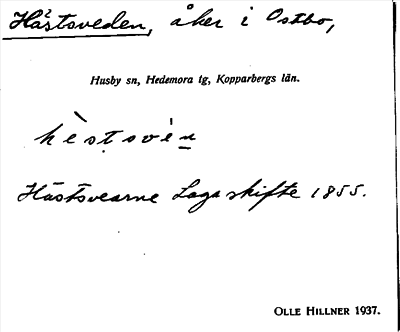 Hästsveden, åker i Ostbo,
Husby sn, Hedemora tg, Kopparbergs län.
hèstsvén
Hästsvearne Laga skifte 1855.
OLLE HILLNER 1937.